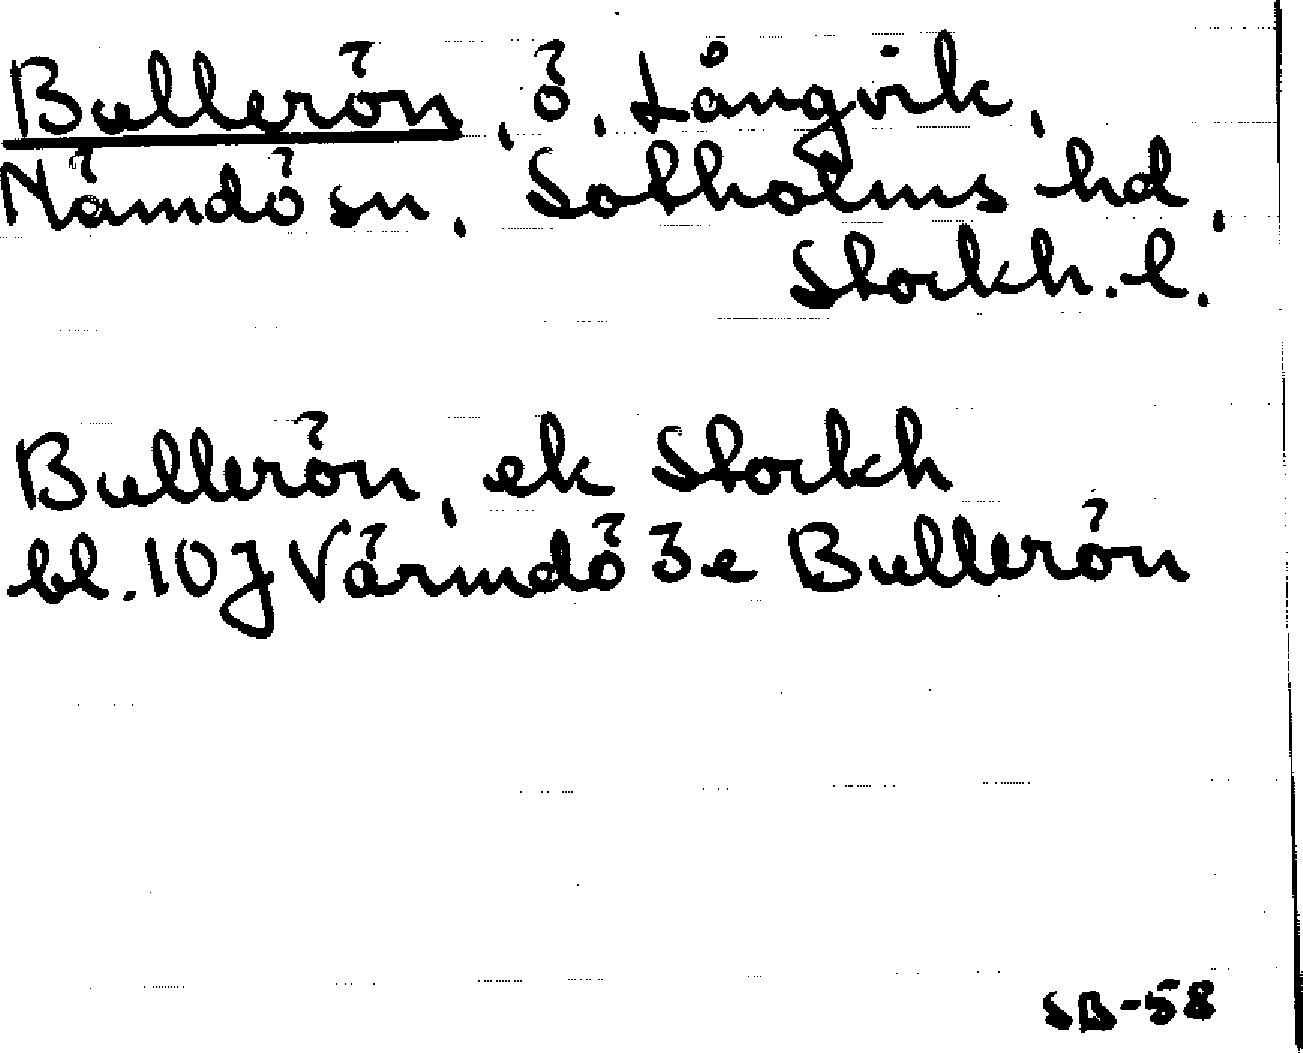 Bullerön, ö, Långvik,
Nämdö sn, Sotholms hd,
Stockh. l.
Bullerön, ek Stockh
bl. 10J Värmdö 3e Bullerön
SB-58